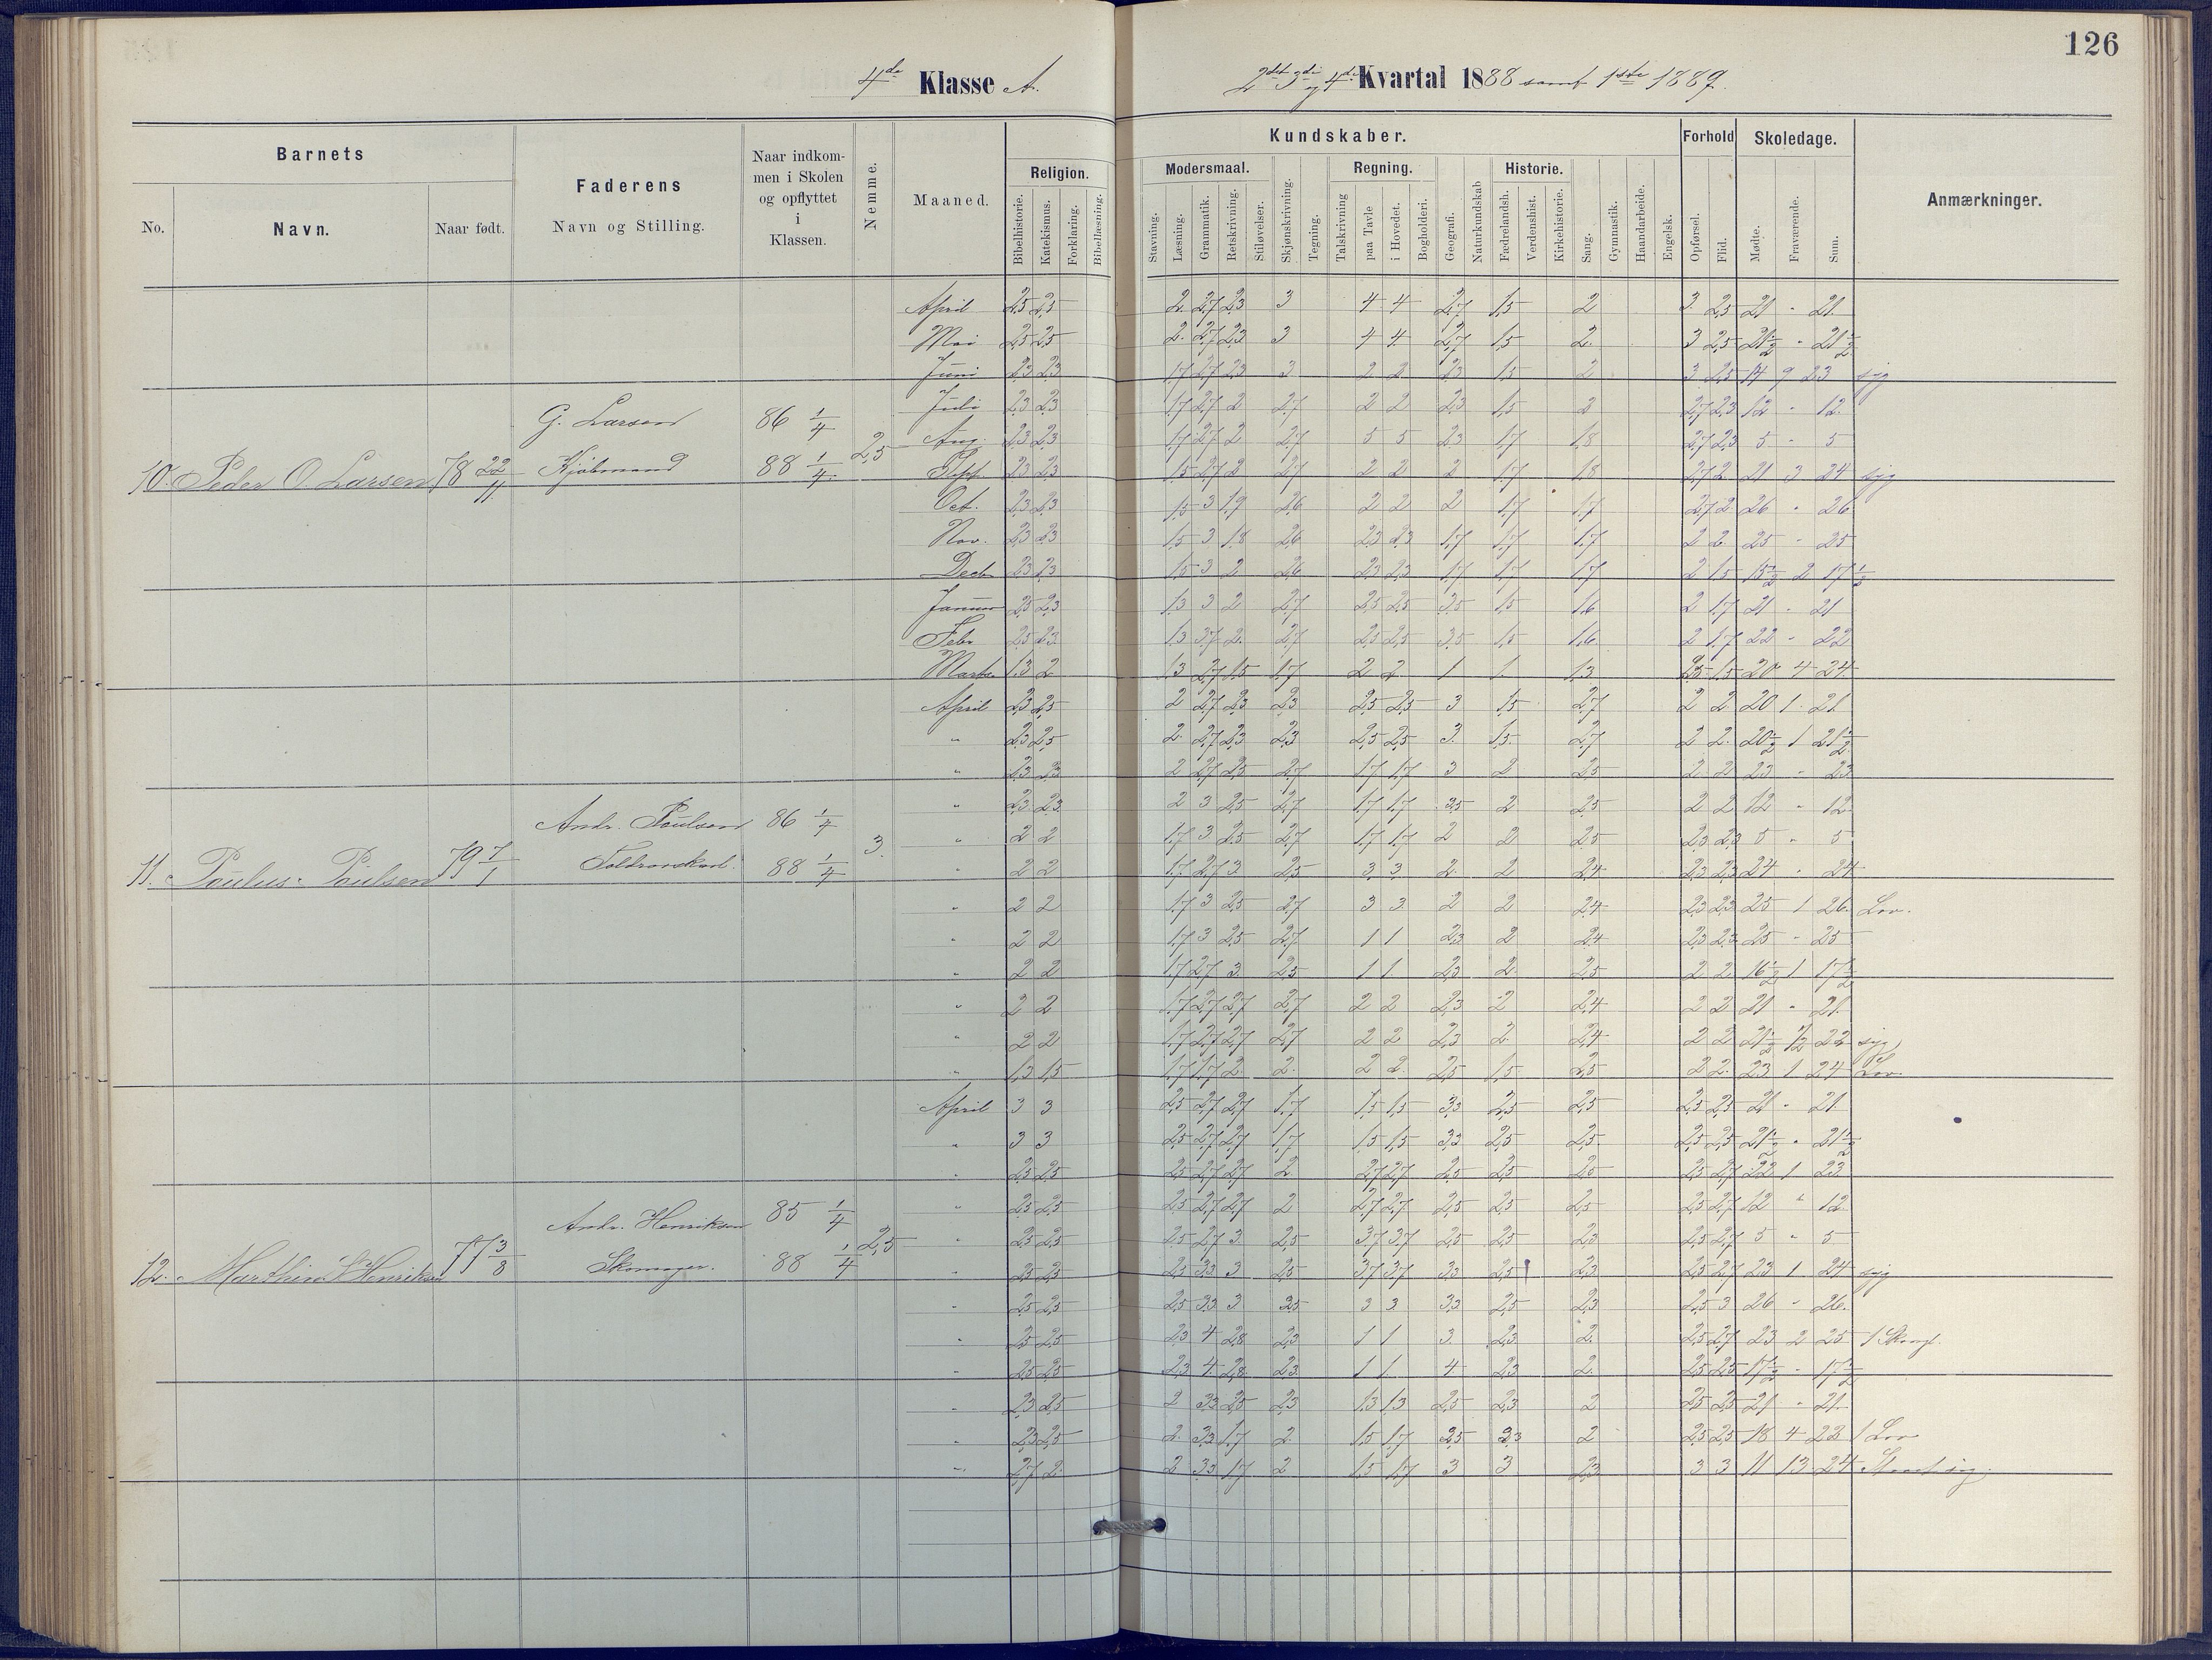 126
4de Klasse A.
2det 3die og 4de Kvartal 1888 samt 1ste 1889.
Barnets
No.
Navn.
Naar født.
Faderens
Navn og Stilling.
Naar indkom-
men i Skolen
og opflyttet
i
Klassen.
Nemme.
Maaned.
Kundskaber.
Religion.
Bibelhistorie.
Katekismus.
Forklaring.
Bibellæsning.
Modersmaal.
Stavning.
Læsning.
Grammatik.
Retskrivning.
Stiløvelser.
Skjønskrivning.
Tegning.
Regning.
Talskrivning
paa Tavle
i Hovedet.
Bogholderi.
Geografi.
Naturkundskab
Historie.
Fædrelandsh.
Verdenshist.
Kirkehistorie.
Sang.
Gymnastik.
Haandarbeide.
Engelsk.
Forhold
Opførsel.
Flid.
Skoledage.
Mødte.
Fraværende.
Sum.
Anmærkninger.
10. Peder O. Larsen 78 22/11 G. Larsen Kjøbmand 86 1/4 88 1/4 2,5
April 2,5 2,5 2. 2,7 2,3 3 4 4 2,7 1,5 2 3. 2,5 21 - 21.
Mai 2,5 2,5 2. 2,7 2,3 3 4 4. 2,7 1,5 2. 3 2,5 21 1/2 - 21 1/2
Juni 2,3 2,3 1,7 2,7 2,3 3 2 2 2,3 1,5 2 3 2,5 14 9 23 syg
Juli 2,3 2,3 1,7 2,7 2 2,7 2 2 2,3 1,5 2 2,7 2,3 12 - 12.
Aug. 2,3 2,3 1,7 2,7 2 2,7 5 5 2,3 1,7 1,8 2,7 2,3 5 - 5
Sept. 2,3 2,3 1,5 2,7 2 2,7 2 2 2 1,7 1,8 2,7 2. 21 3 24 syg
Oct. 2,3 2,3 1,5 3 1,9 2,6 2 2 2 1,7 1,7 2,7 2. 26 - 26
Nov. 2,3 2,3 1,5 3 1,8 2,6 2,3 2,3 1,7 1,7 1,7 2 2. 25 - 25
Decbr 2,3 2,3 1,5 3 2 2,6 2,3 2,3 1,7 1,7 1,7 2 1,5 15 1/2 2 17 1/2
Januar 2,5 2,3 1,3 3 2 2,7 2,5 2,5 3,5 1,5 1,6 2 1,7 21 - 21
Febr 2,5 2,3 1,3 3,7 2. 2,7 2,5 2,5 3,5 1,5 1,6 2 1,7 22 - 22
Marts 1,3 2 1,3 2,7 1,5 1,7 2 2. 1 1. 1,3 1,5 20 4 24.
11. Paulus Paulsen 79 7/1 Andr. Paulsen 86 1/4 88 1/4 3.
April 2,3 2,5 2 2,7 2,3 2,3 2,5 2,5 3 1,5 2,7 2 2 20 1 21
" 2,3 2,5 2. 2,7 2,3 2,3 2,5 2,5 3. 1,5. 2,7 2 2. 20 1/2 1 21 1/2
" 2,3 2,3 2 2,7 2,5 2,7 1,7 1,7 3 2 2,5 2 2 23 - 23
" 2,3 2,3 2 3 2,5 2,7 1,7 1,7 3,5 2 2,5 2 2 12 - 12.
" 2 2 1,7 3 2,5 2,7 1,7 1,7 2 2 2,5 2,3 2,3 5 - 5
" 2 2 1,7 2,7 3 2,5 3 3 2. 2 2,4 2,3 2,3 24 - 24
" 2 2 1,7 3 2,5 2,7 3 3. 2 2 2,4 2,3 2,3 25 1 26. Lov.
" 2 2 1,7 3 2,5 2,7 1 1 2,3 2 2,4 2,3 2,3 25 - 25
" 2 2 1,7 2,7 3. 2,5 1 1. 2,3 2. 2,5 2 2. 16 1/2 1 17 1/2
" 2 2 1,7 2,7 2,7 2,7 2 2 2,3 2 2,4 2 2 21 - 21
" 2 2 1,7 2,7 2,7 2,7 2 2 2,3 2. 2,4 2 2 21 1/2 1/2 22 syg
" 1,3 1,5 1,7 1,7 2. 2. 2 2. 2,5 1,5 2,5 2 2. 23 1 24 Lov.
12. Marthin Henriksen 77 3/8 Andr. Henriksen Skomager. 85 1/4 88 1/4 2,5
April 3 3 2,5 2,7 2,7 1,7 1,5 1,5 3,3 2,5 2,5 2,5 2,5 21 - 21.
" 3 3 2,5 2,7 2,7 1,7 1,5 1,5 3,3 2,5 2,5 2,5 2,5 21 1/2 - 21 1/2
" 2,5 2,5 2,5 2,7 2,7 2. 2,7 2,7 2,5 2,5 2,5 2,5 2,7 22 1 23
" 2,5 2,5 2,5 2,7 2,7 2 2,7 2,7 2,5 2,5 2,5 2,5 2,7 12 " 12.
" 2,5 2,5 2,5 2,7 3 2,5 3,7 3,7 2,5 2,5 2,3 2,5 2,7 5 " 5
" 2,5 2,5 2,5 3,3 3 2,5 3,7 3,7 3,3 2,5 2,3 2,5 2,7 23 1 24 syg
" 2,5 2,5 2,5 3,3 3 2,5 3 3. 3,3 2,5 2,3 2,5 3 26 - 26.
" 2,5 2,5 2,3 4 2,8 2,3 1 1 3. 2,3 2. 2,5 2,7 23 2 25
" 2,5 2,5 2,3 4. 2,8 2,3 1 1. 4 2,3 2. 2,5 2,5 17 1/2 - 17 1/2
" 2,3 2,5 2 3,3 2,5 2,3 1,3 1,3 2,5 2,3 2 2,5 2,5 21 - 21.
" 2,3 2,5 2. 3,3 1,7 2. 1,5 1,7 2,5 2,3 2 2,5 2,5 18 4 22 1 Lov
" 2,7 2. 2 3,3 1,7 2 1,5 1,7 3 3 2,3 3 3 11 13 24